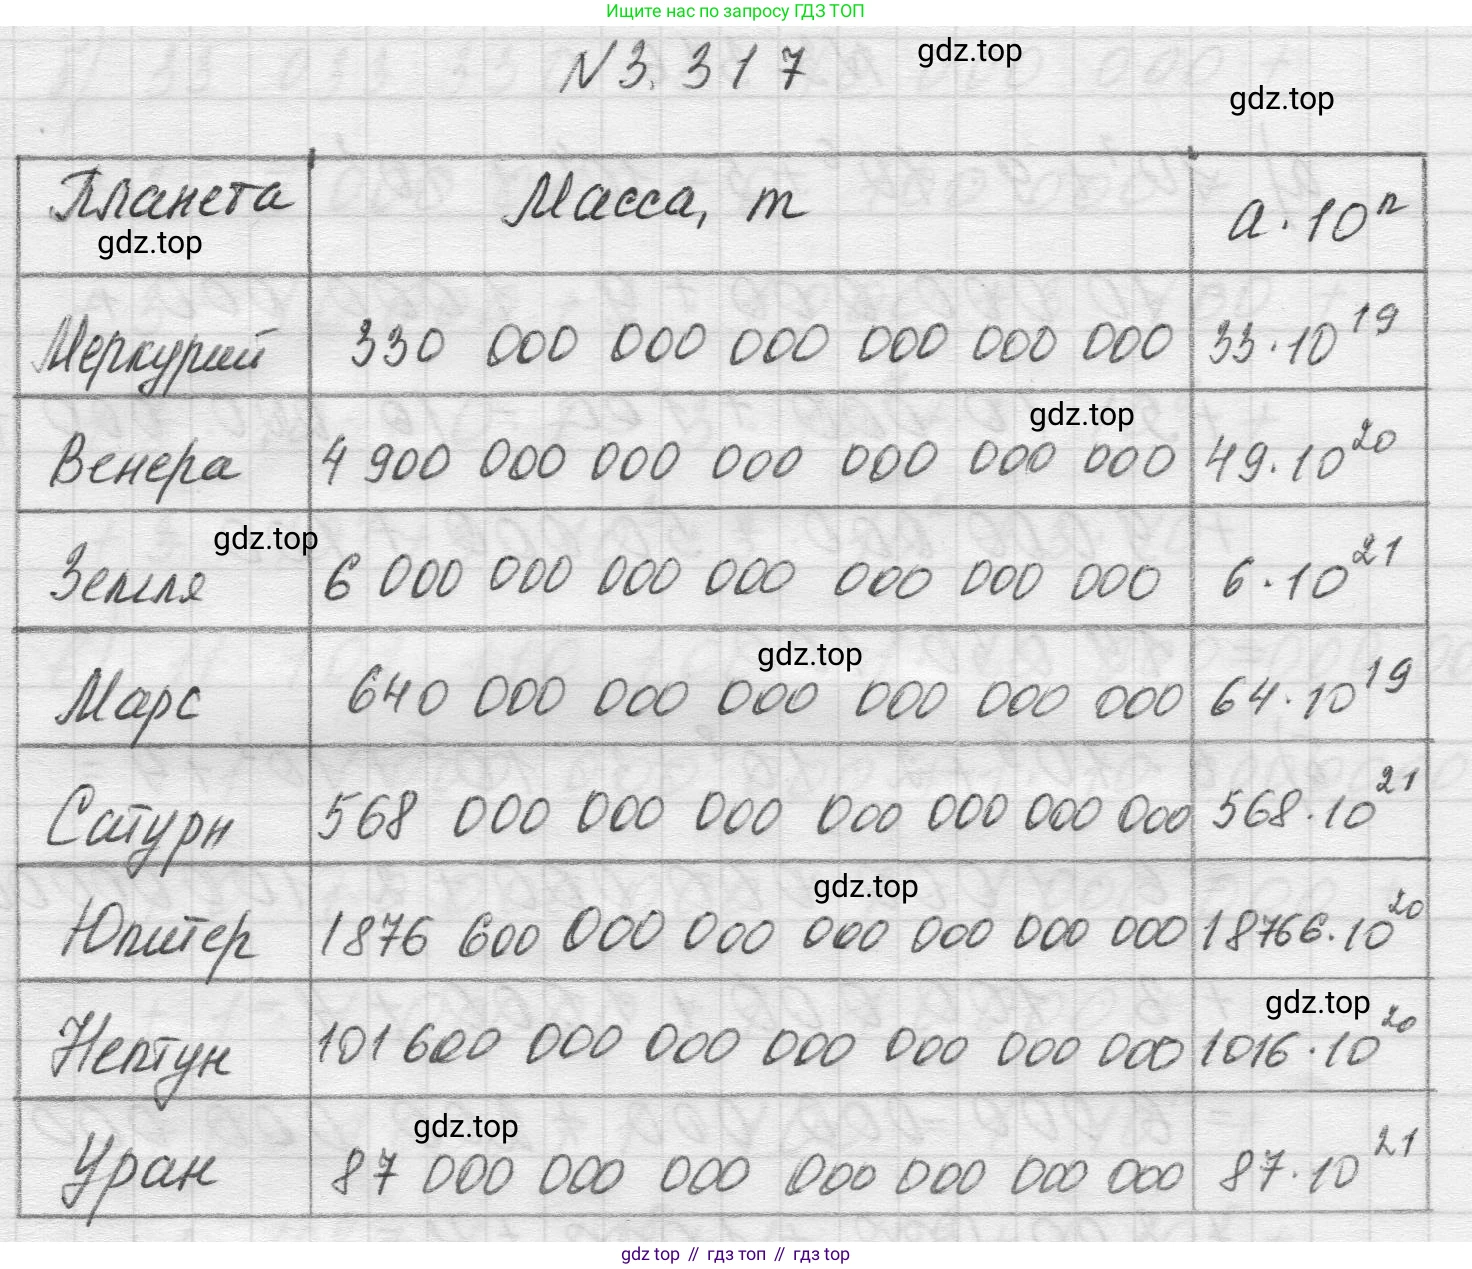 Ищите нас по запросу ГДЗ ТОП
N 3.317
gdz.top
gdz.top
Планета Масса, т a · 10ⁿ
gdz.top
Меркурий 330 000 000 000 000 000 000 33 · 10¹⁹
gdz.top
Венера 4 900 000 000 000 000 000 000 49 · 10²⁰
gdz.top
Земля 6 000 000 000 000 000 000 000 6 · 10²¹
gdz.top
Марс 640 000 000 000 000 000 000 64 · 10¹⁹
Сатурн 568 000 000 000 000 000 000 000 568 · 10²¹
gdz.top
Юпитер 1876 600 000 000 000 000 000 000 18766 · 10²⁰
gdz.top
Нептун 101 600 000 000 000 000 000 000 1016 · 10²⁰
gdz.top
Уран 87 000 000 000 000 000 000 000 87 · 10²¹
gdz top // гдз топ // гдз top